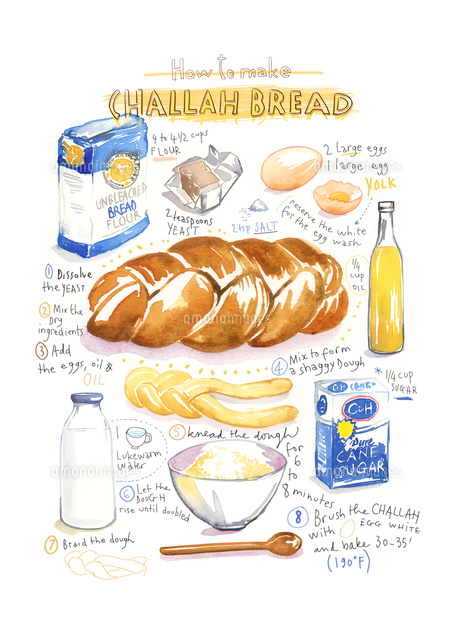 How to make
CHALLAH BREAD
4 to 4 1/2 cups
FLOUR
UNBLEACHED
BREAD
FLOUR
2 teaspoons
YEAST
2 large eggs
1 large egg
YOLK
reserve the white
for the egg wash
2 tsp SALT
1/4
cup
OIL
1 Dissolve
the YEAST
2 Mix the
DRY
ingredients
3 Add
the eggs, oil &
OIL
4 Mix to form
a shaggy Dough
* 1/4 cup
SUGAR
C&H
C&H
Pure
CANE
SUGAR
1
Lukewarm
water
5 knead the dough
for 6
to
8 minutes
6 Let the
DOUGH
rise until doubled
7 Braid the dough
8 Brush the CHALLAH
with EGG WHITE
and bake 30-35'
(190°F)
amanaimages
amanaimages
amanaimages
amanaimages
amanaimages